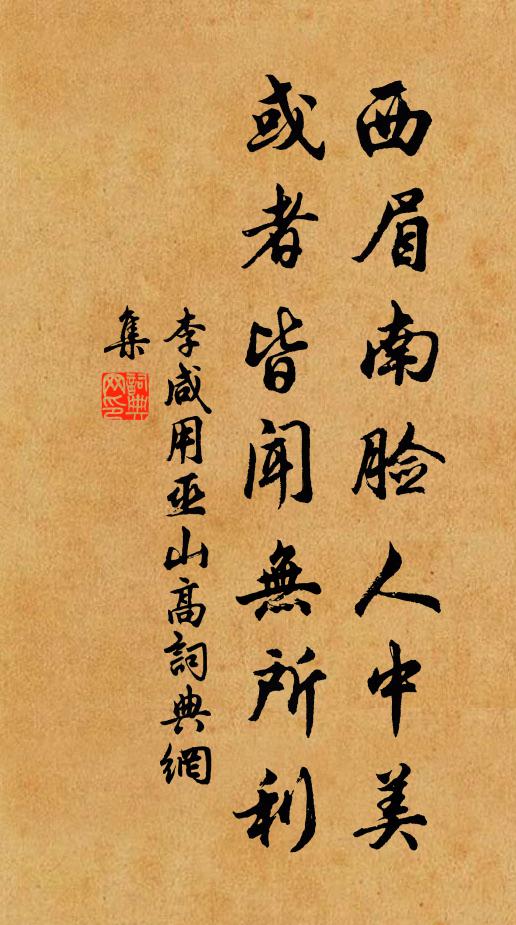 西眉南脸人中美
或者皆闻無所利
李咸用巫山高詞典網
集
詞典
网印